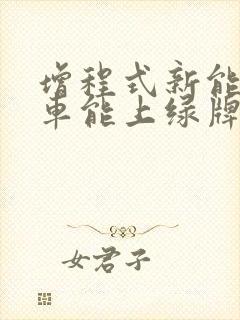 增程式新能
车能上绿牌
女君子